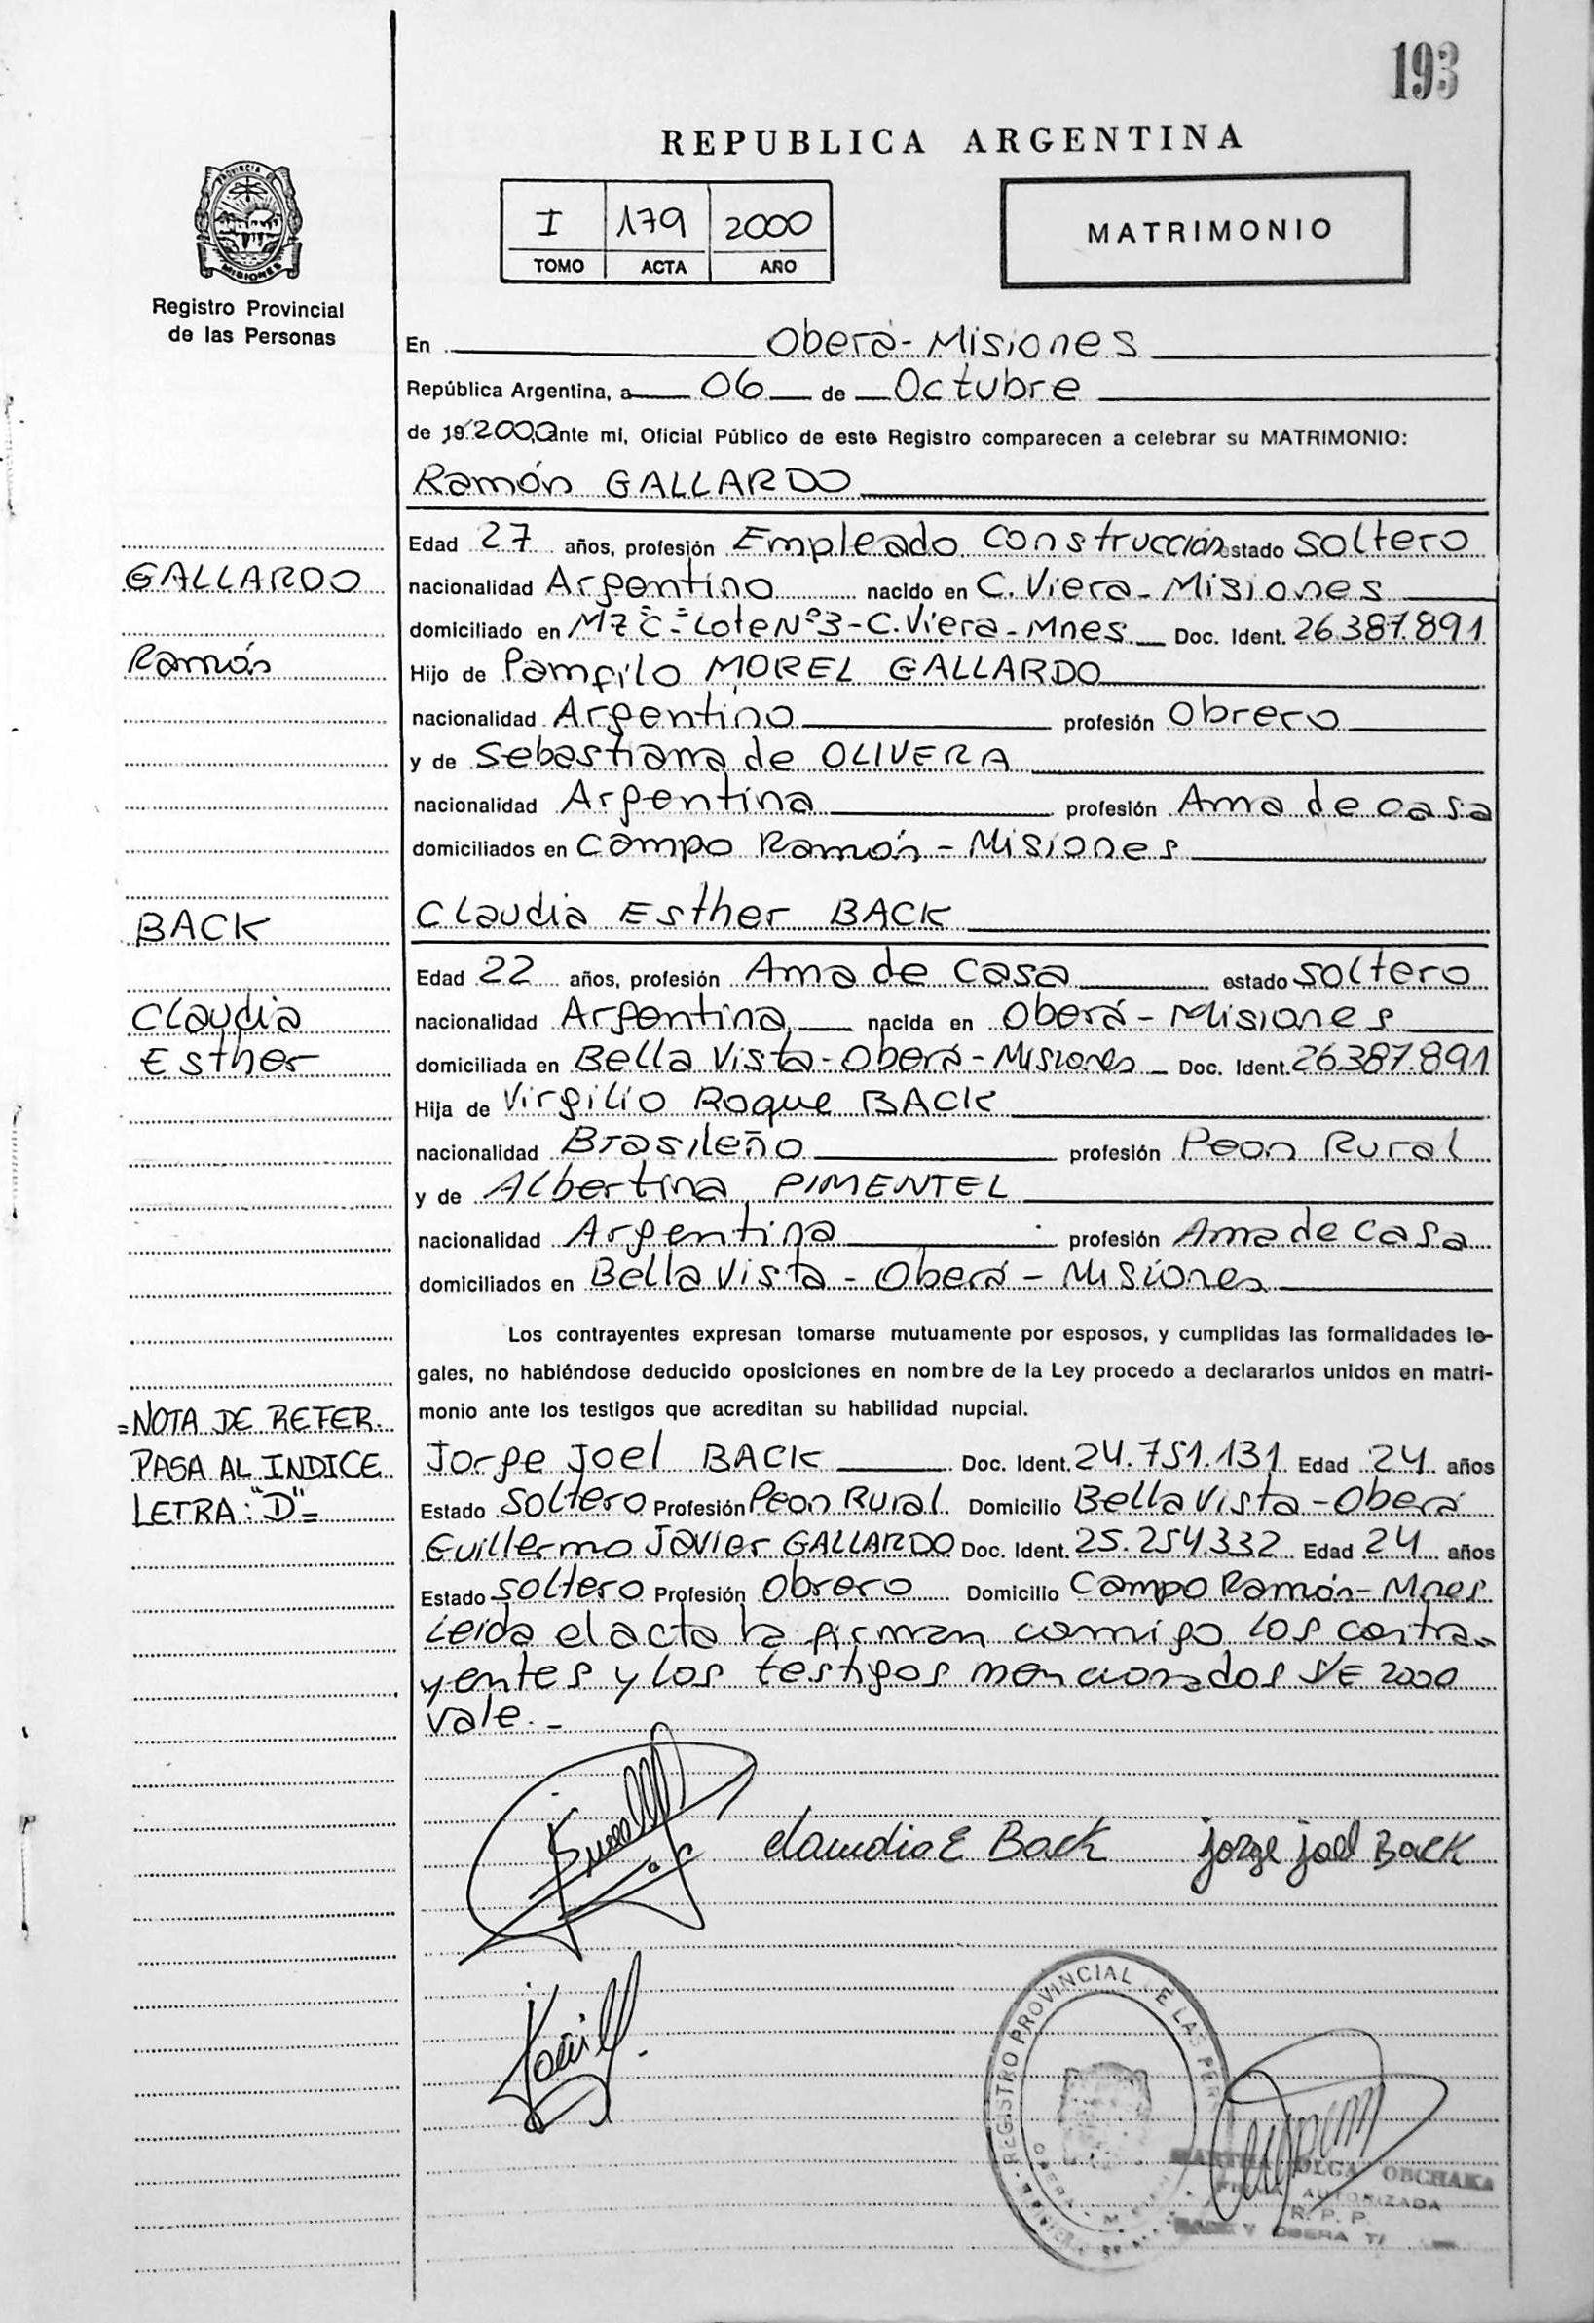 193
REPUBLICA ARGENTINA
PROVINCIA DE
MISIONES
I 179 2000
TOMO ACTA AÑO
MATRIMONIO
Registro Provincial
de las Personas
En Oberá - Misiones
República Argentina, a 06 de Octubre
de 19 2000 ante mi, Oficial Público de este Registro comparecen a celebrar su MATRIMONIO:
Ramón GALLARDO
Edad 27 años, profesión Empleado Construcción estado soltero
GALLARDO
nacionalidad Argentino nacido en C. Viera - Misiones
domiciliado en Mz "C" = Lote Nº 3 - C. Viera - Mnes Doc. Ident. 26.387.891
Ramón
Hijo de Pamfilo MOREL GALLARDO
nacionalidad Argentino profesión Obrero
y de Sebastiana de OLIVERA
nacionalidad Argentina profesión Ama de casa
domiciliados en Campo Ramón - Misiones
BACK
Claudia Esther BACK
Edad 22 años, profesión Ama de Casa estado soltero
Claudia
nacionalidad Argentina nacida en Oberá - Misiones
Esther
domiciliada en Bella Vista - Oberá - Misiones Doc. Ident. 26387.891
Hija de Virgilio Roque BACK
nacionalidad Brasileño profesión Peon Rural
y de Albertina PIMENTEL
nacionalidad Argentina profesión Ama de Casa
domiciliados en Bella Vista - Oberá - Misiones
Los contrayentes expresan tomarse mutuamente por esposos, y cumplidas las formalidades le-
gales, no habiéndose deducido oposiciones en nombre de la Ley procedo a declararlos unidos en matri-
monio ante los testigos que acreditan su habilidad nupcial.
=NOTA DE REFER.
PASA AL INDICE
LETRA: "D"=
Jorge Joel BACK Doc. Ident. 24.751.131 Edad 24 años
Estado soltero Profesión Peon Rural Domicilio Bella Vista - Oberá
Guillermo Javier GALLARDO Doc. Ident. 25.254.332 Edad 24 años
Estado soltero Profesión Obrero Domicilio Campo Ramón - Mnes
Leida el acta la firman conmigo los contra-
yentes y los testigos mencionados S/E 2000
vale.-
Claudia E Back jorge joel Back
REGISTRO PROVINCIAL DE LAS PER
MARTHA OLGA OBCHAKA
FIRMA AUTORIZADA
R. P. P.
OBERA